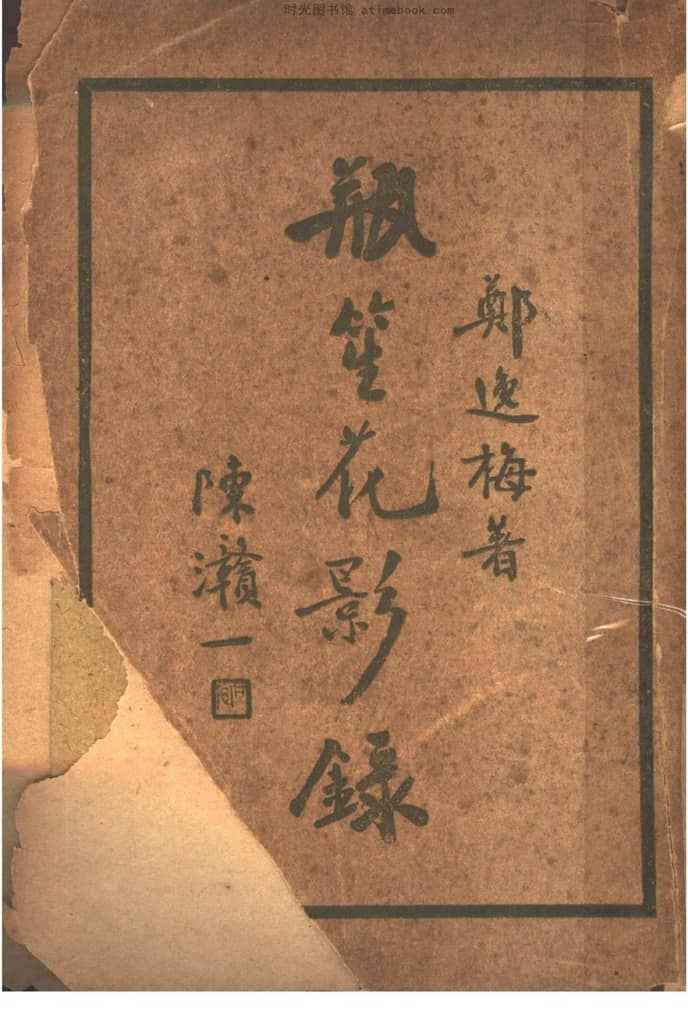 时光图书馆 atimebook.com
鄭逸梅著
瓶笙花影錄
陳灨一